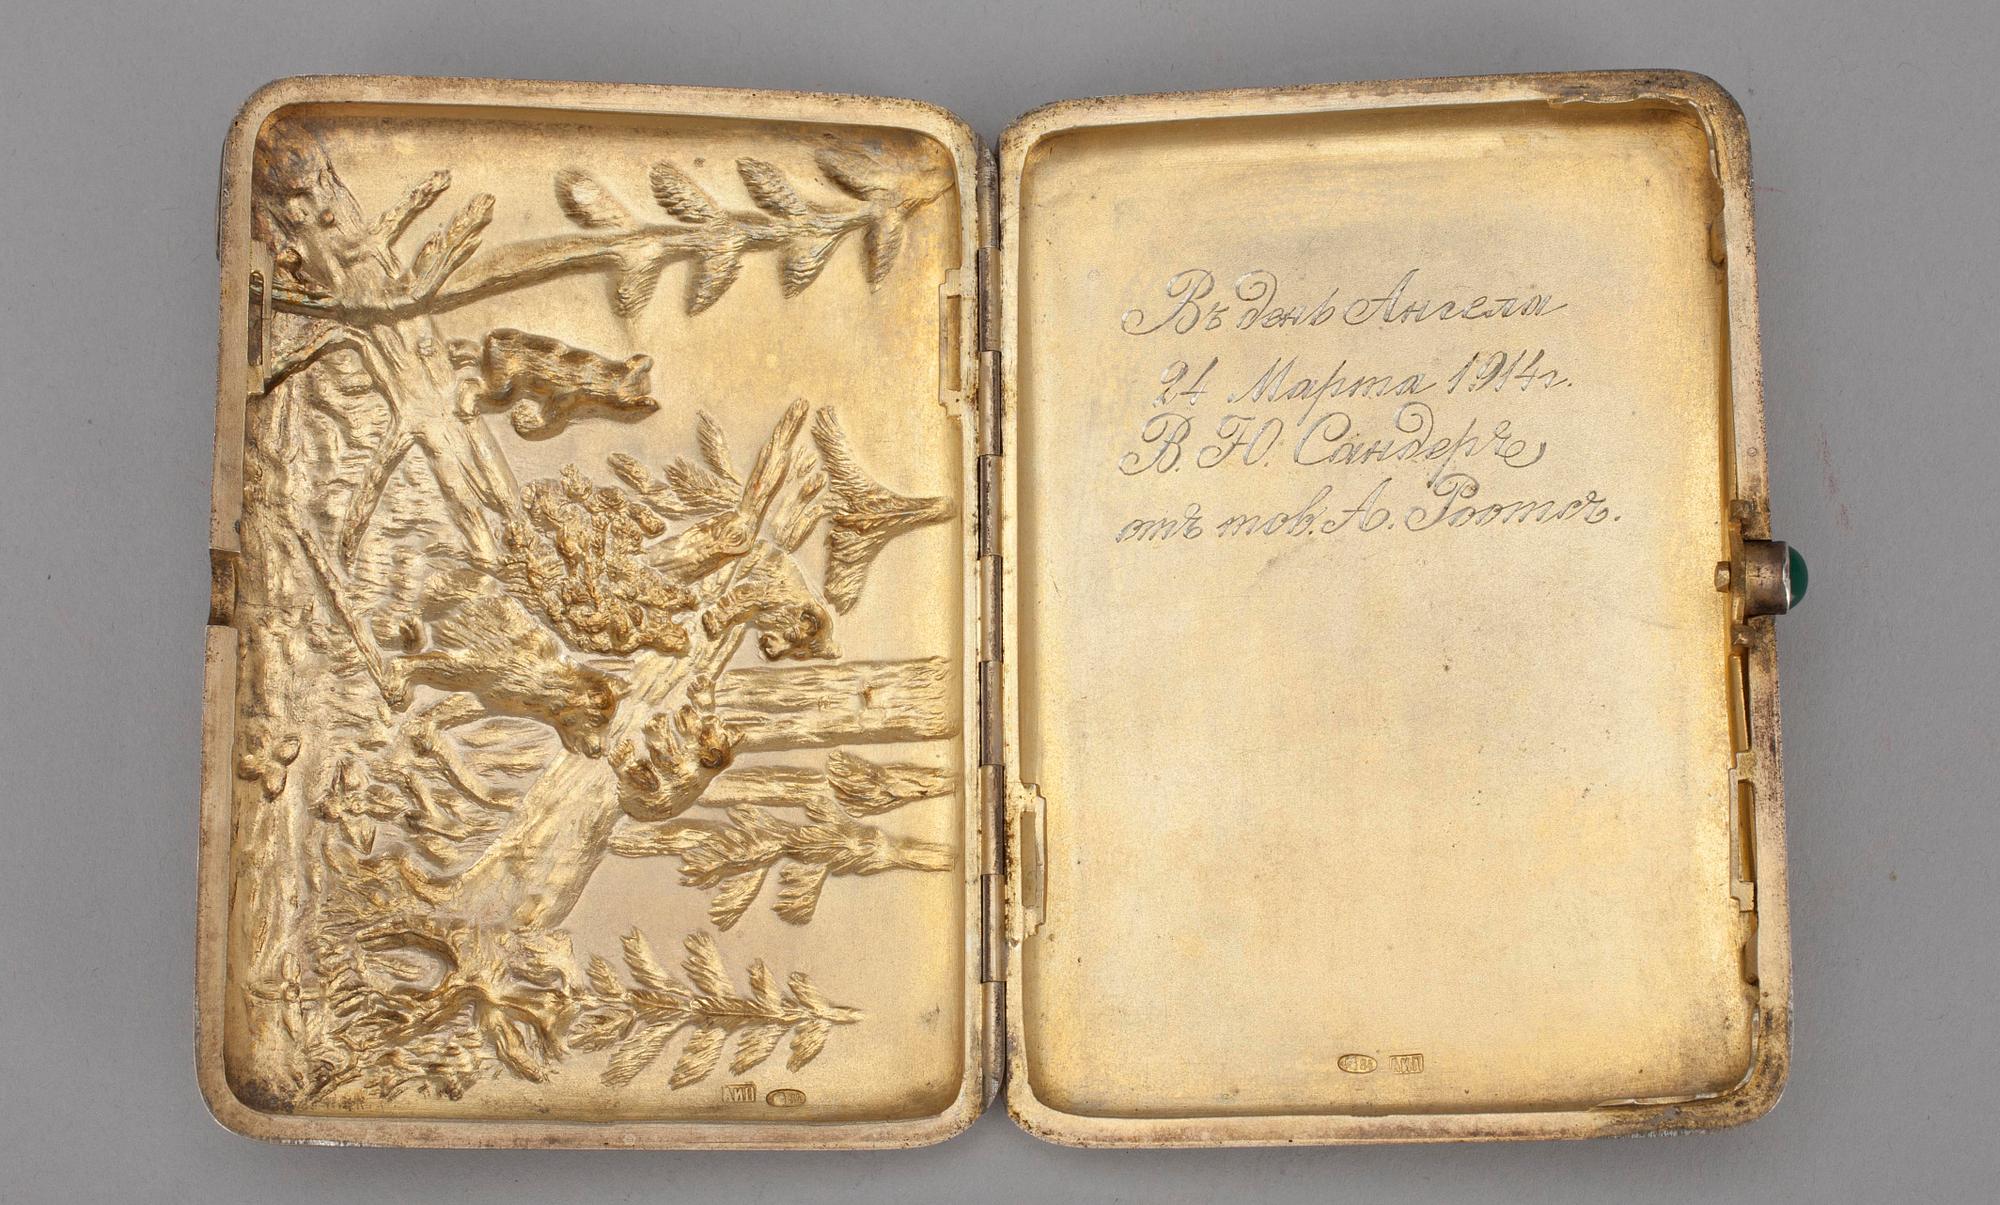 Въ день Ангела
24 Марта 1914г.
В. Ю. Сандеръ
отъ тов. А. Роотсъ.
84
АИП